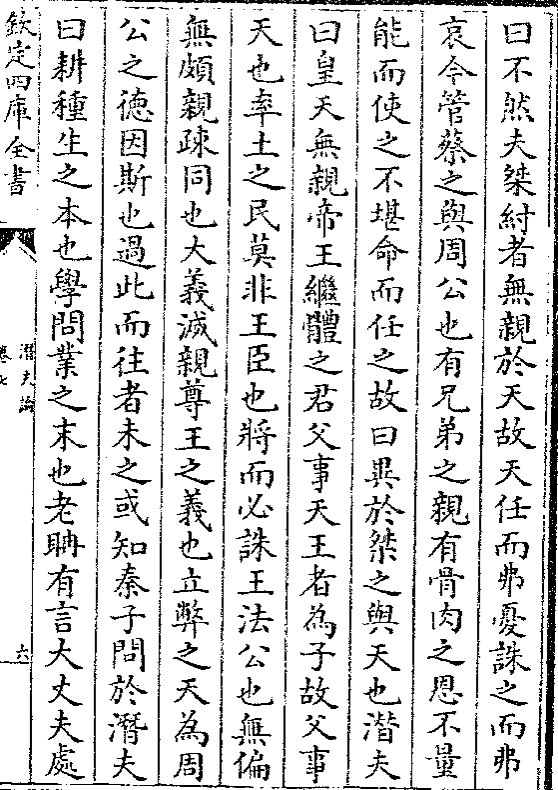 曰不然夫桀紂者無親於天故天任而弗憂誅之而弗
哀今管蔡之與周公也有兄弟之親有骨肉之恩不量
能而使之不堪命而任之故曰異於桀之與天也潛夫
曰皇天無親帝王繼體之君父事天王者為子故父事
天也率土之民莫非王臣也將而必誅王法公也無偏
無頗親疎同也大義滅親尊王之義也立弊之天為周
公之德因斯也過此而往者未之或知秦子問於潛夫
曰耕種生之本也學問業之末也老聃有言大丈夫處
欽定四庫全書
潛夫論
卷七
六